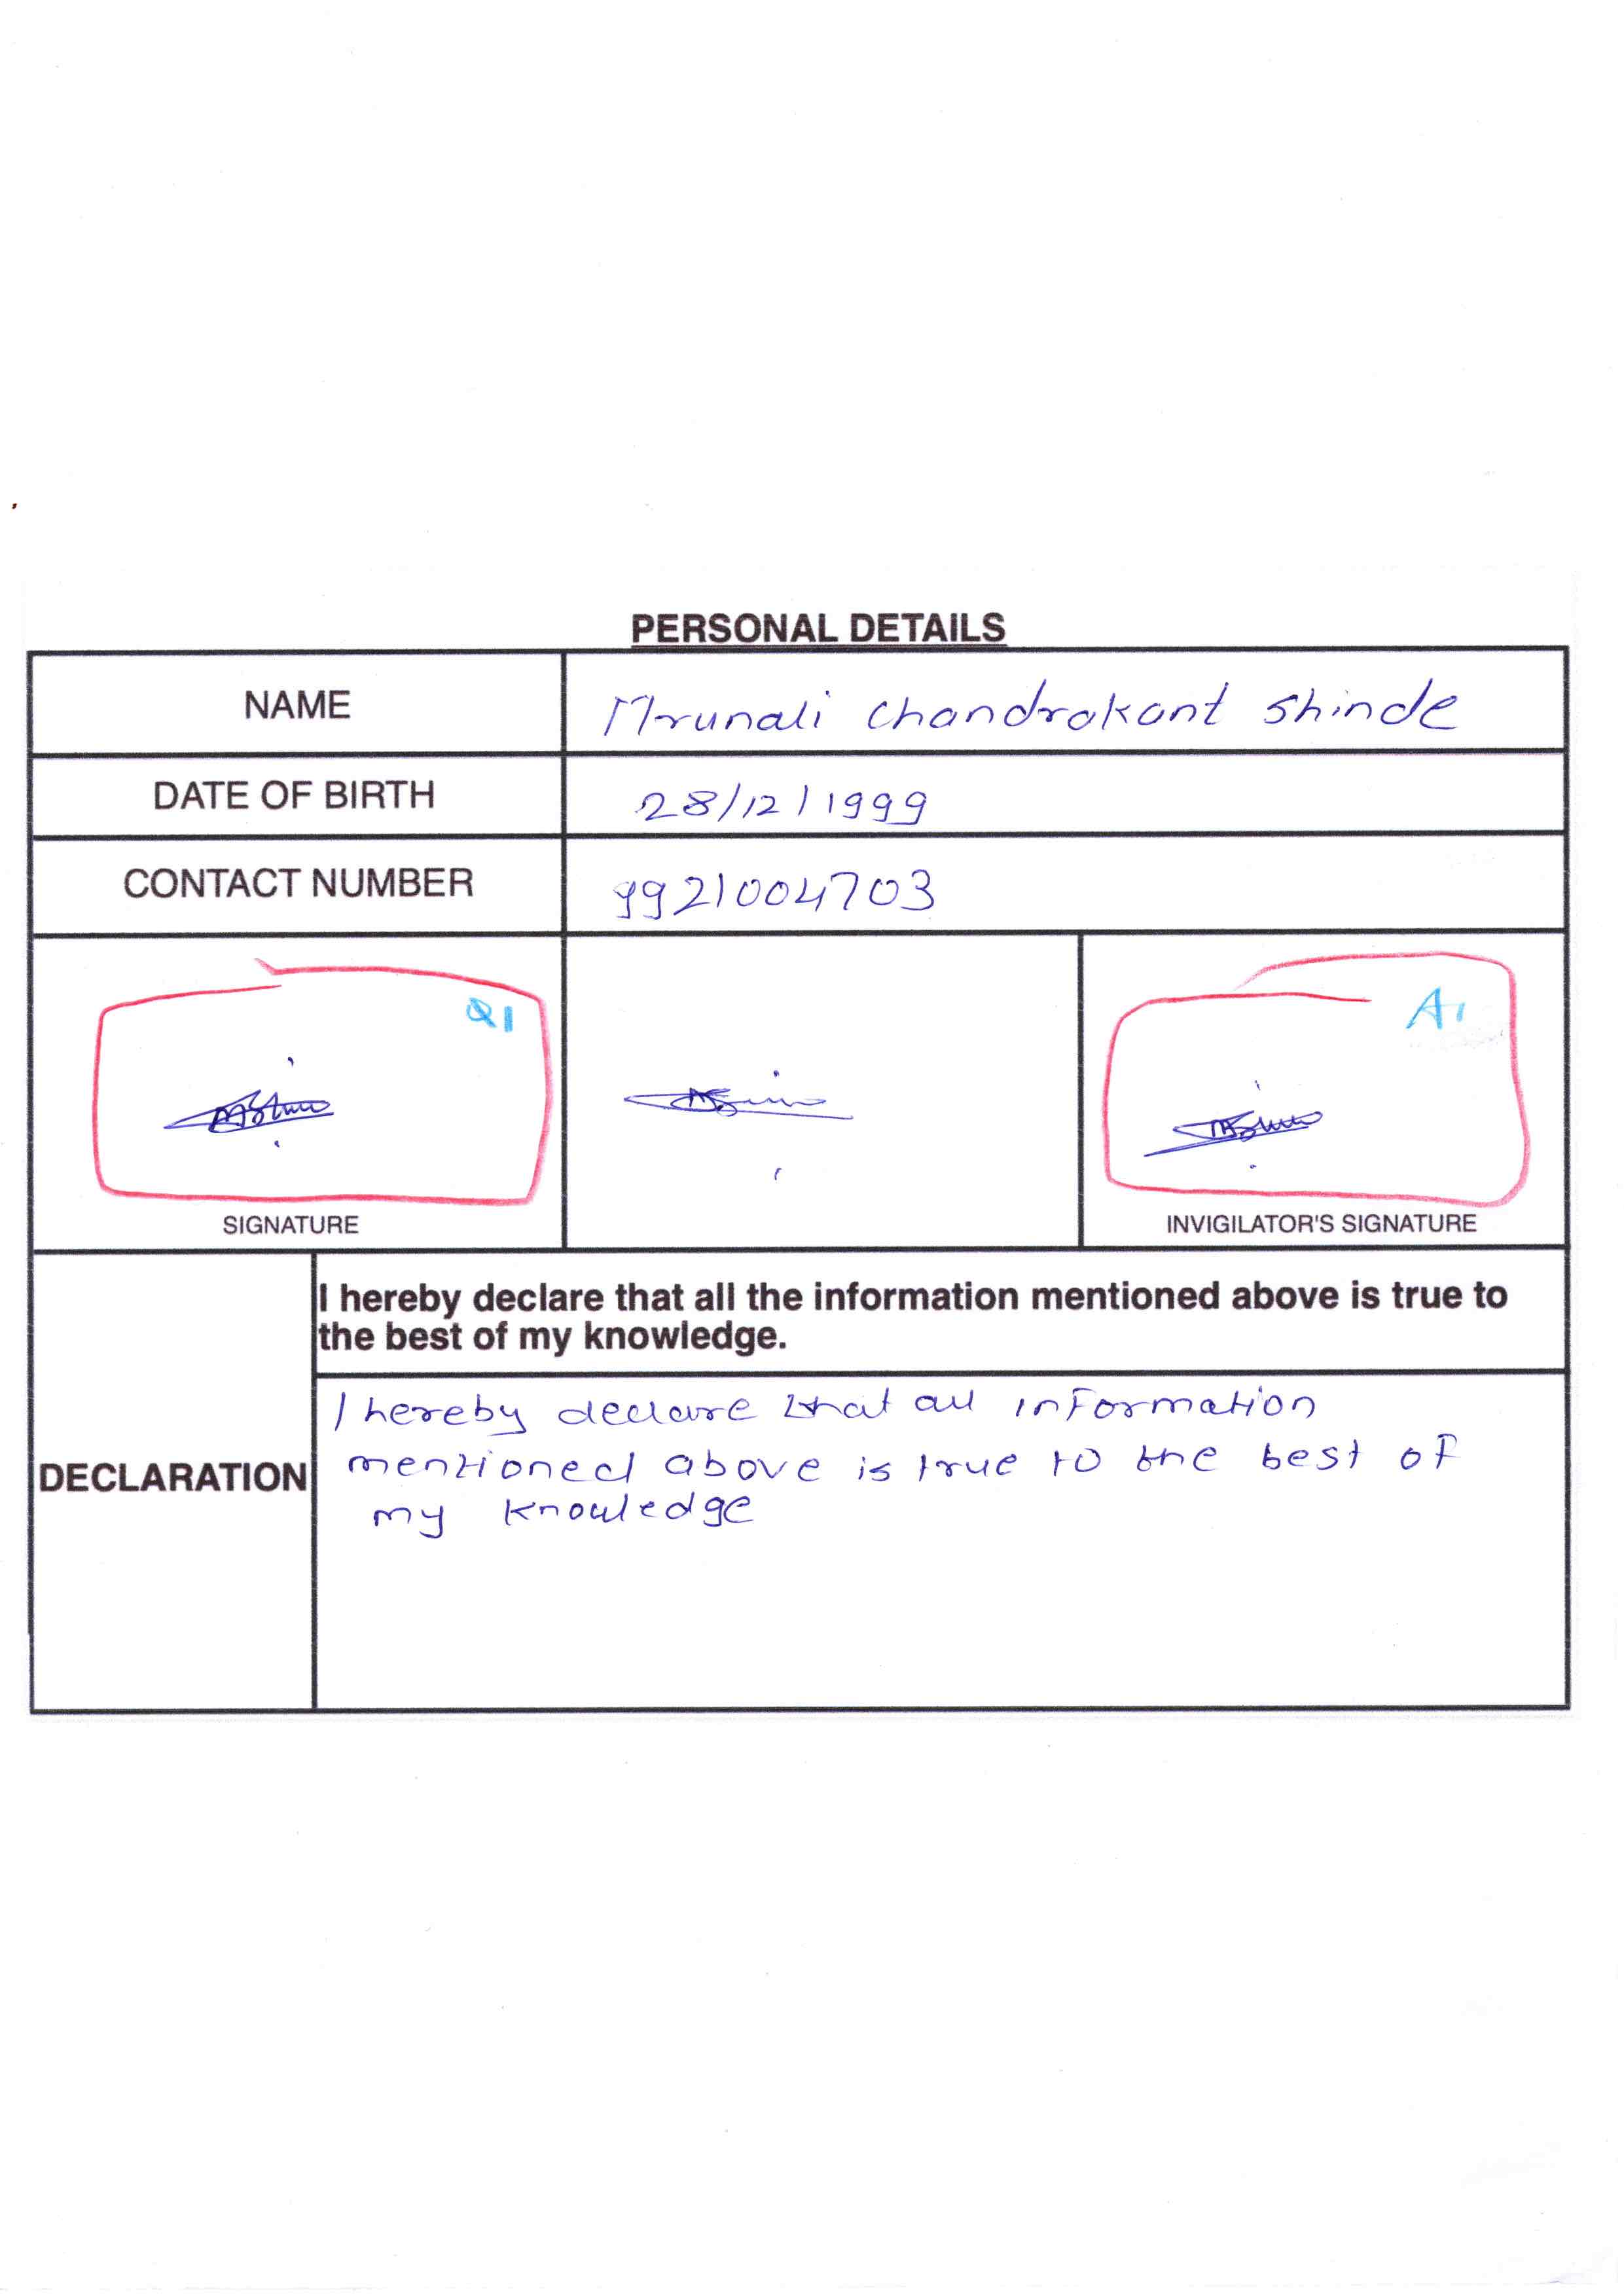 PERSONAL DETAILS
NAME Mrunali chandrakant shinde
DATE OF BIRTH 28/12/1999
CONTACT NUMBER 9921004703
Q1 A1
SIGNATURE INVIGILATOR'S SIGNATURE
I hereby declare that all the information mentioned above is true to
the best of my knowledge.
I hereby declare that all information
DECLARATION mentioned above is true to the best of
my knowledge